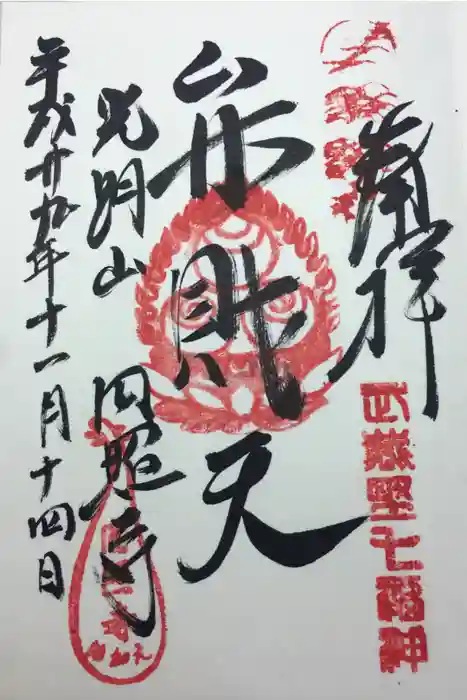 奉拝
武蔵野七福神
弁財天
光明山 円照寺
平成廿九年十一月十四日